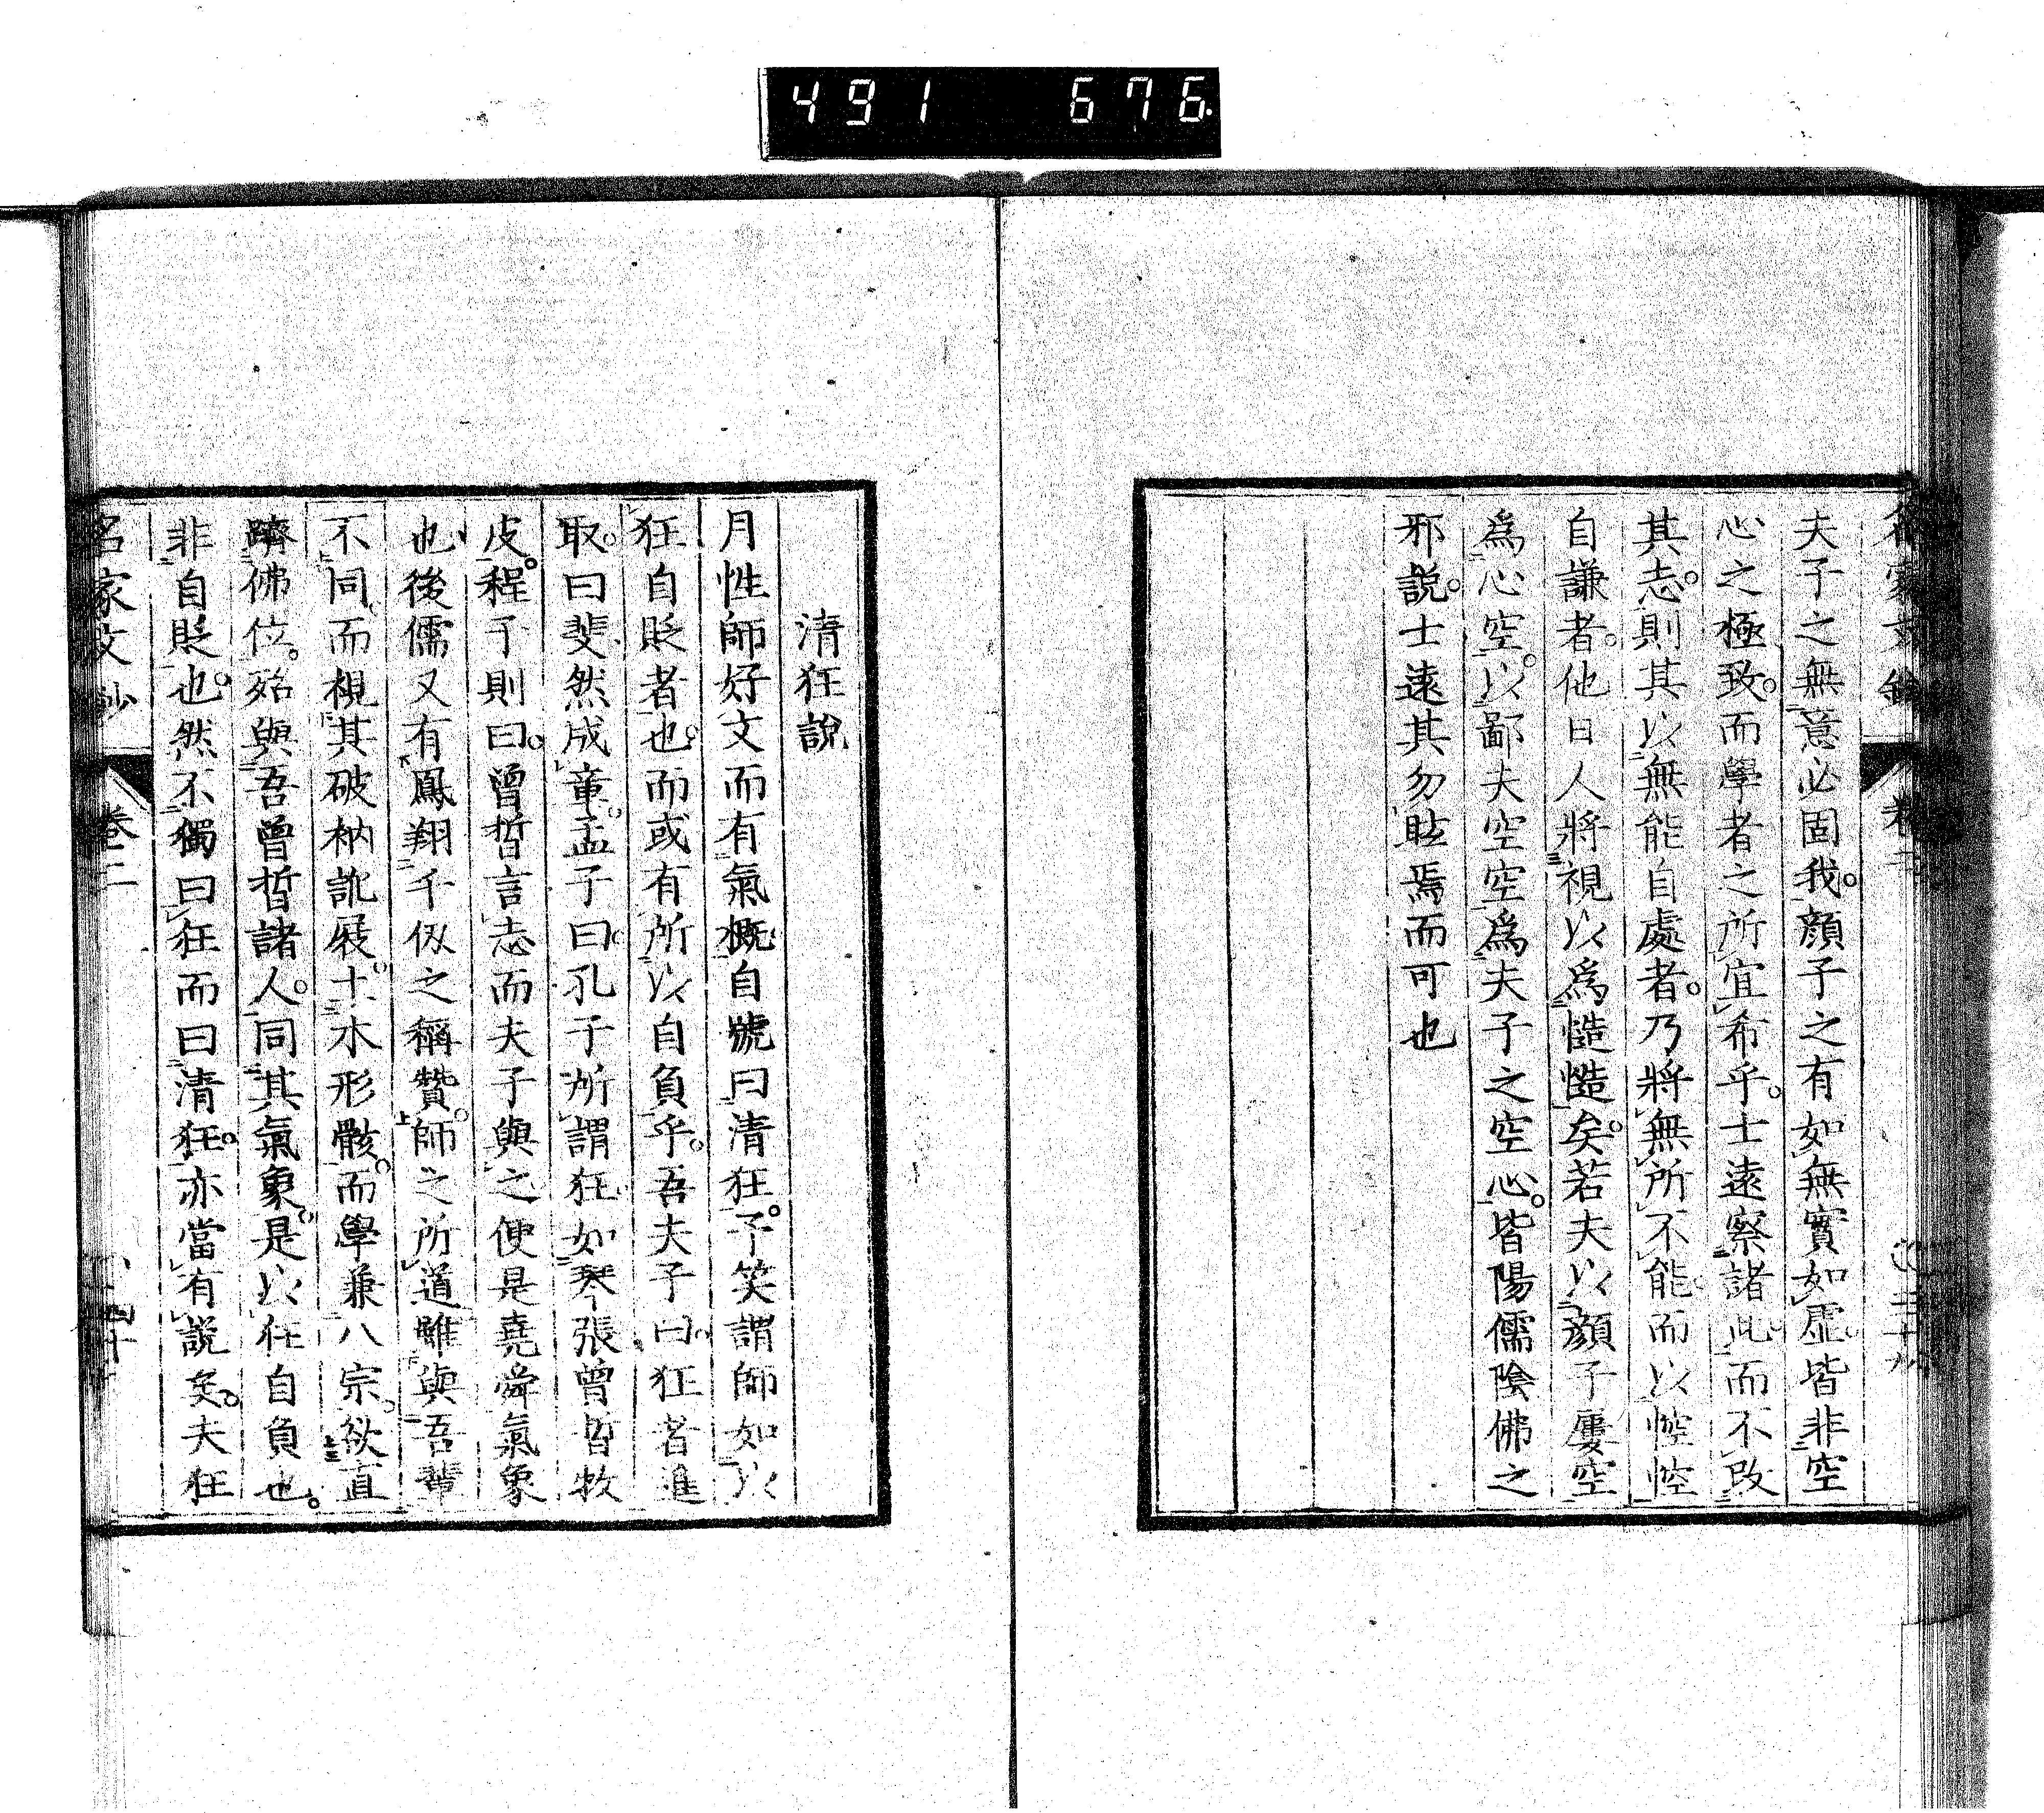 491 676
夫子之無意必固我。顔子之有如無實如虛。皆非空
心之極致。而學者之所宜希乎。士遠察諸此。而不改
其志。則其以無能自處者。乃將無所不能。而以悾悾
自謙者。他日人將視以爲慥慥矣。若夫以顔子屢空
爲心空。以鄙夫空空爲夫子之空心。皆陽儒陰佛之
邪説。士遠其勿眩焉而可也
清狂說
月性師好文而有氣概。自號曰清狂。予笑謂師如以
狂自貶者也。而或有所以自負乎。吾夫子曰。狂者進
取。曰斐然成章。孟子曰。孔子所謂狂。如琴張曾晳牧
皮。程子則曰。曾晳言志而夫子與之便是堯舜氣象
也。後儒又有鳳翔千仭之稱贊。師之所道雖與吾輩
不同。而視其破衲訛屐。土木形骸。而學兼八宗。欲直
躋佛位。殆與吾曾晳諸人。同其氣象。是以狂自負也。
非自貶也。然不獨曰狂而曰清狂。亦當有説矣。夫狂
名家文鈔 卷二 四十